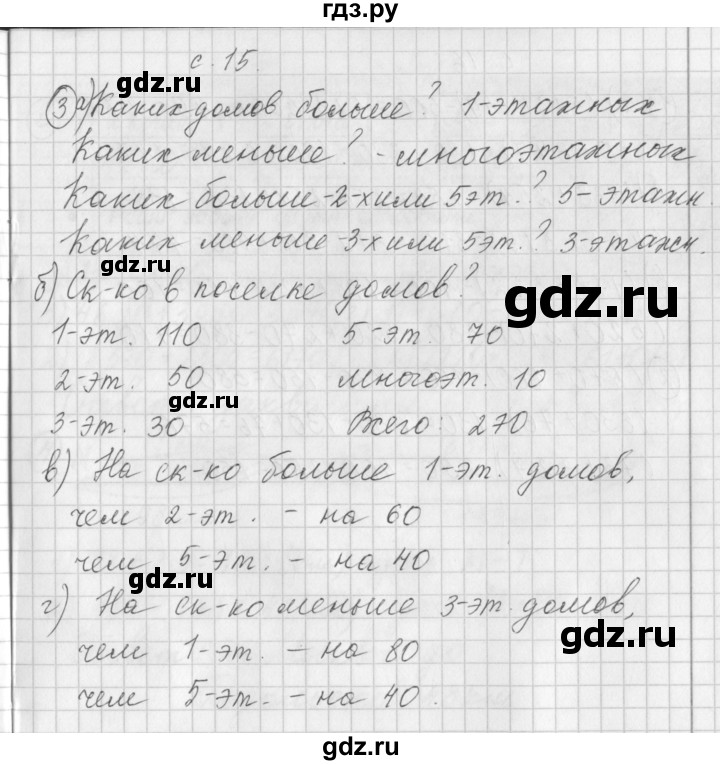 гдз.ру
с. 15.
gdz.ru
3 а) Каких домов больше? 1-этажных
Каких меньше? - многоэтажных
Каких больше - 2-х или 5эт.? 5-этажн.
Каких меньше - 3-х или 5эт.? 3-этажн.
gdz.ru
б) Ск-ко в поселке домов?
gdz.ru
1-эт. 110 5-эт. 70
2-эт. 50 многоэт. 10
gdz.ru
3-эт. 30 Всего: 270
в) На ск-ко больше 1-эт. домов,
gdz.ru
чем 2-эт. - на 60
чем 5-эт. - на 40
gdz.ru
г) На ск-ко меньше 3-эт. домов,
gdz.ru
чем 1-эт. - на 80
gdz.ru
чем 5-эт. - на 40.
gdz.ru